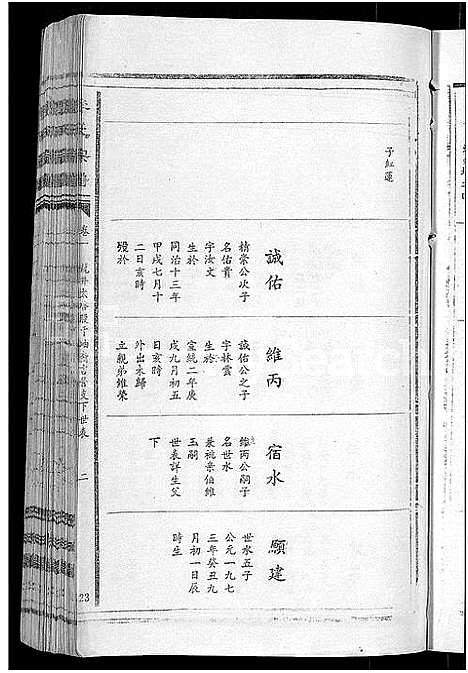 子紅蓮
誠佑
精崇公次子
名佑貴
字汝文
生於
同治十三年
甲戌七月十
二日亥時
歿於
維丙
誠佑公之子
字林雲
生於
宣統二年庚
戌九月初五
日亥時
外出未歸
立親弟維榮
宿水
維丙公嗣子
名世水
兼祧榮伯維
玉嗣
世表詳生父
下
顯建
世水五子
公元一九七
三年癸丑九
月初一日辰
時生
卷一
下世表
二
23